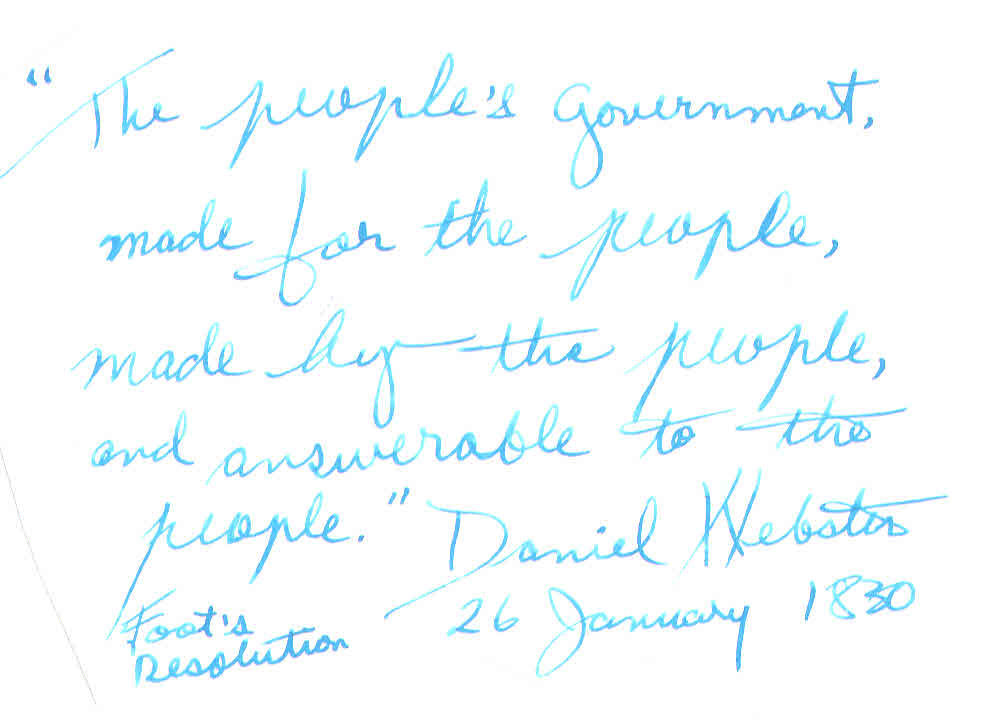 "The people's government,
made for the people,
made by the people,
and answerable to the
people." Daniel Webster
Foot's 26 January 1830
Resolution